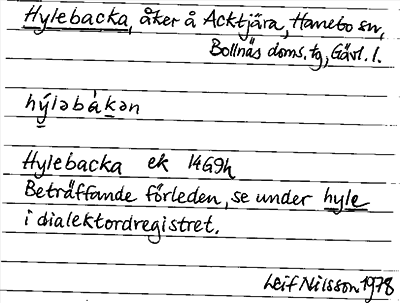 Hylebacka, åker å Acktjära, Hanebo sn,
Bollnäs doms. tg, Gävl. l.
hýləbàkən
Hylebacka ek 14G9h
Beträffande förleden, se under hyle
i dialektordregistret.
Leif Nilsson 1978